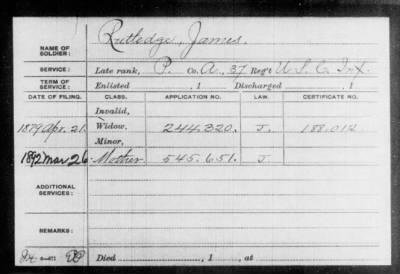 NAME OF SOLDIER: Rutledge, James.
SERVICE: Late rank, P. Co. A, 37 Reg't U. S. C. Inf.
TERM OF SERVICE: Enlisted , 1 Discharged , 1
DATE OF FILING. CLASS. APPLICATION NO. LAW. CERTIFICATE NO.
Invalid,
1879 Apr. 21. Widow, 244.320. J. 188.012
Minor,
1892 Mar 26 Mother 545.651. J.
ADDITIONAL SERVICES:
REMARKS:
Died , 1 , at